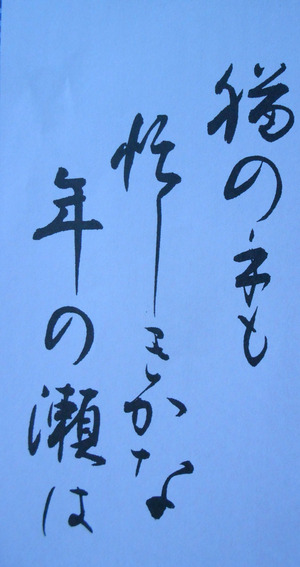 猫の手も
忙しきかな
年の瀬は